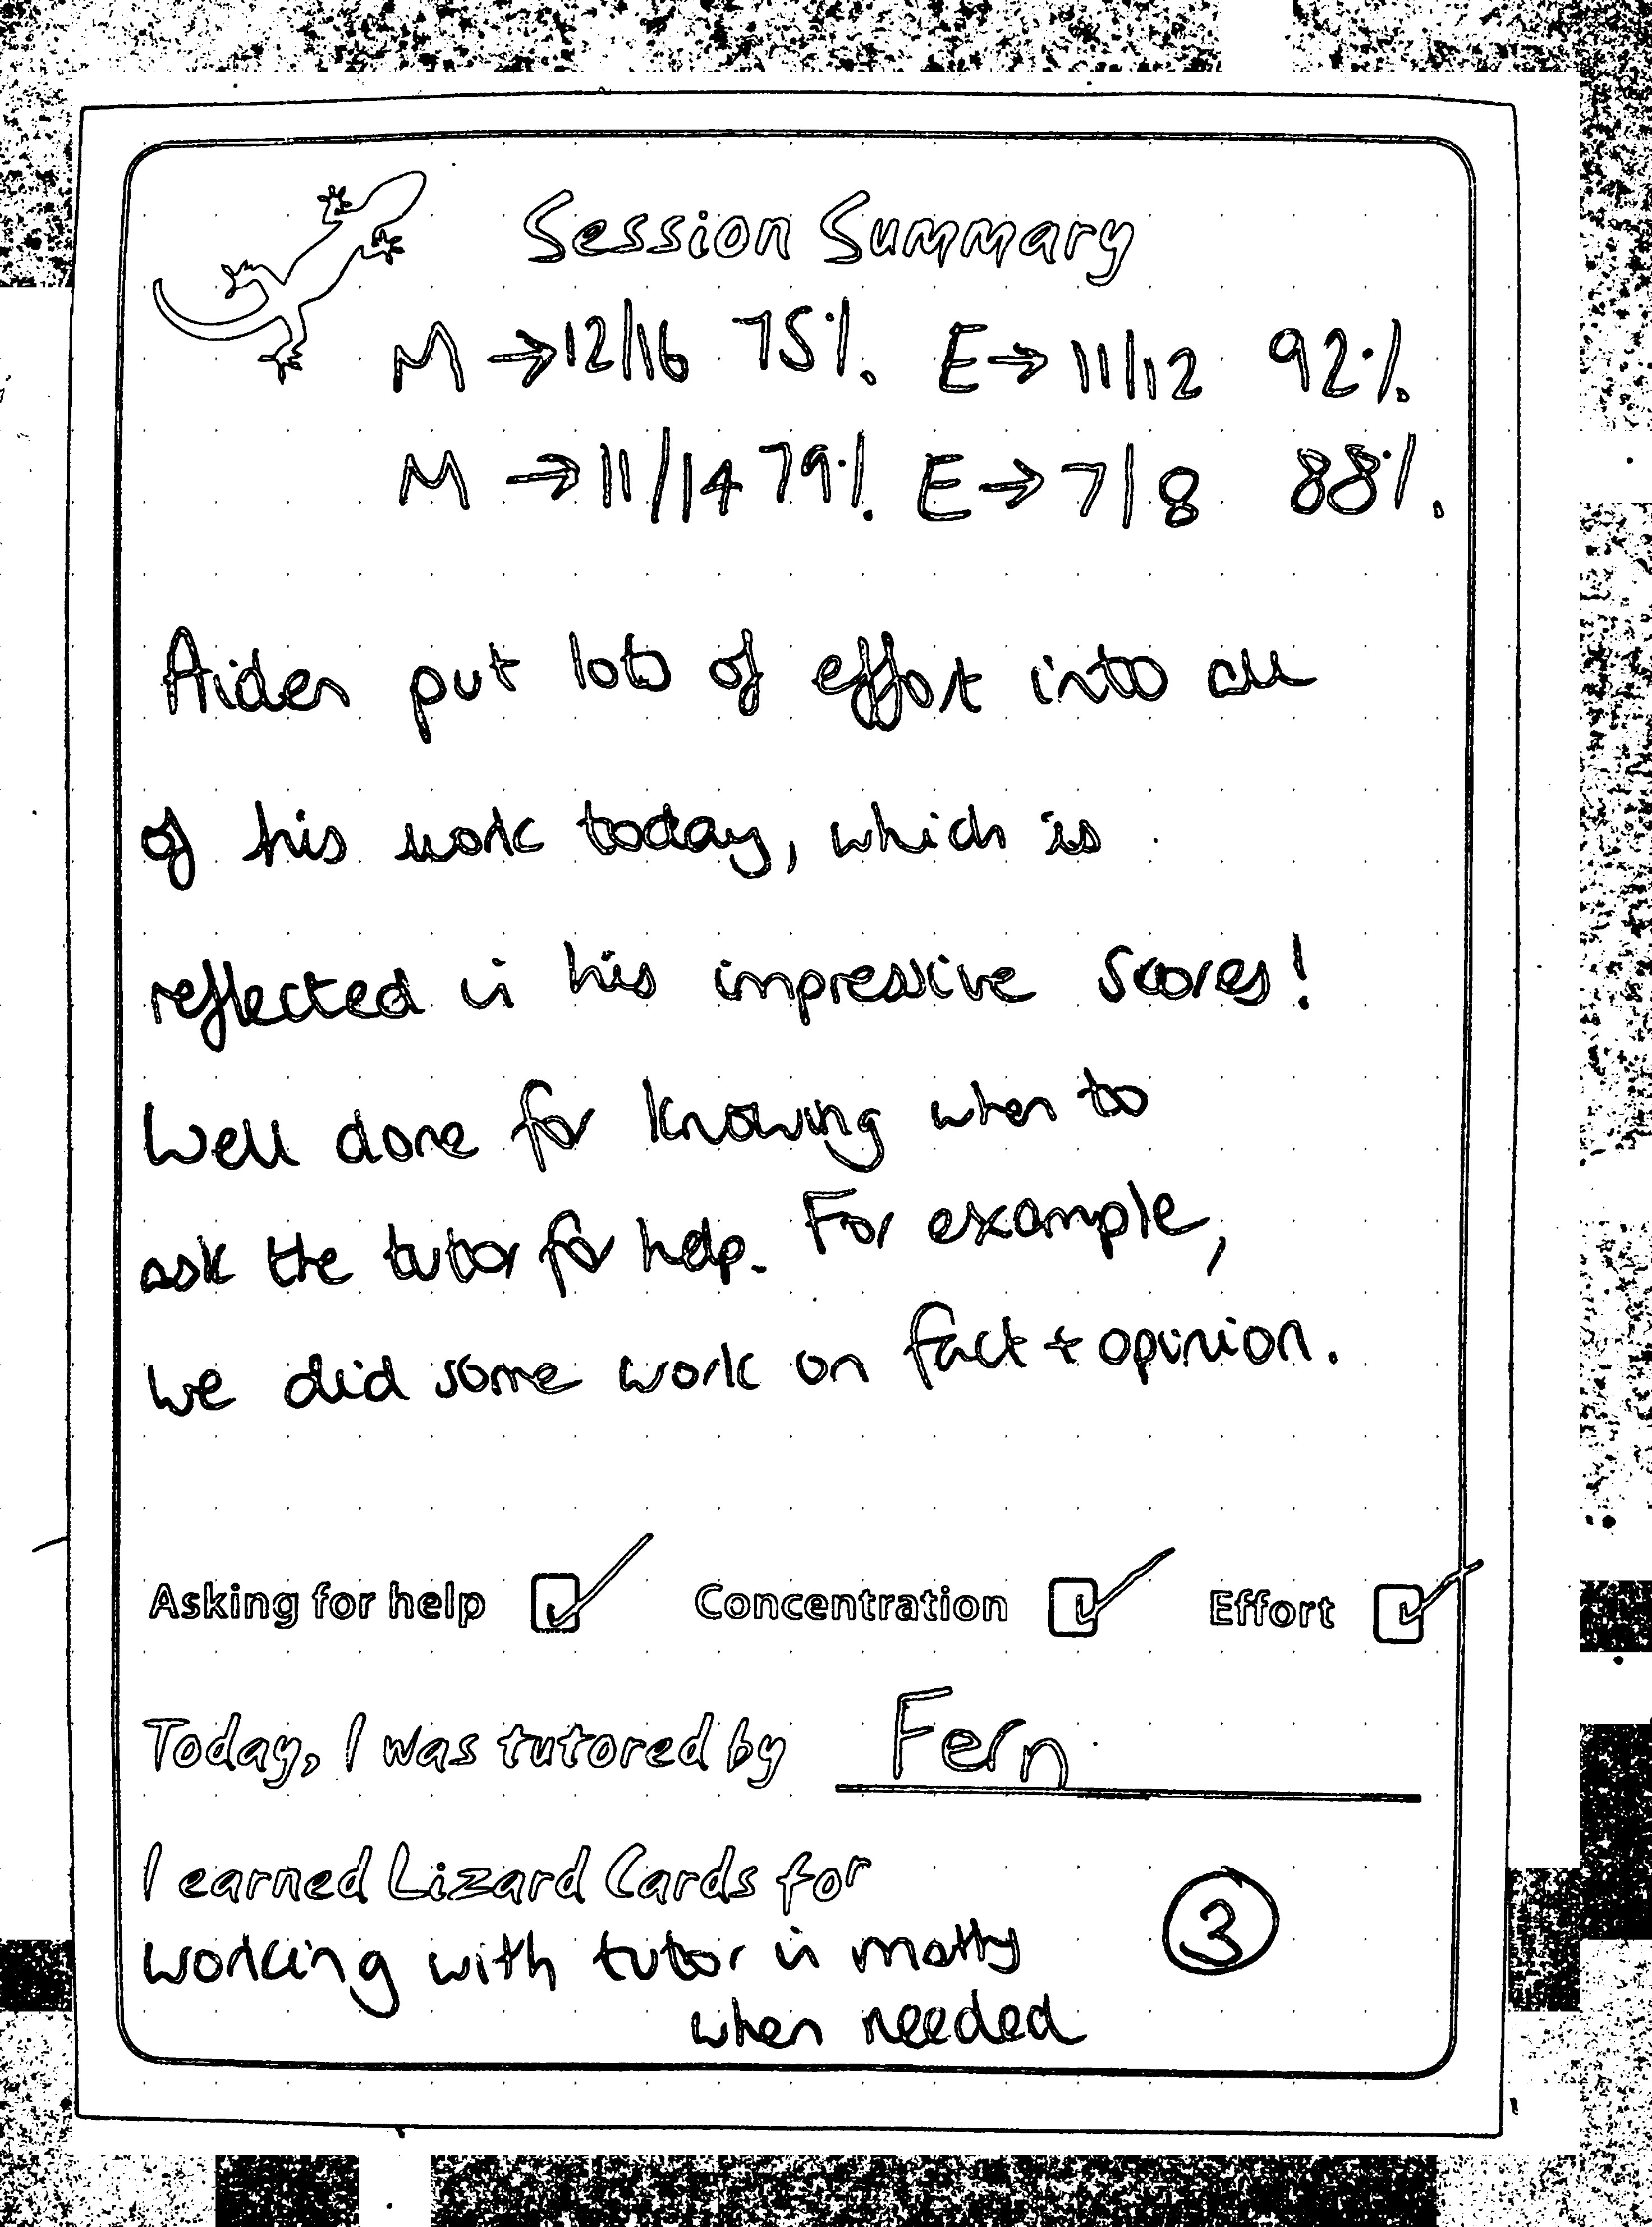 Session Summary
M → 12/16 75% E → 11/12 92%
M → 11/14 79% E → 7/8 88%
Aiden put lots of effort into all
of his work today, which is
reflected in his impressive scores!
Well done for knowing when to
ask the tutor for help. For example,
we did some work on fact + opinion.
Asking for help ☑ Concentration ☑ Effort ☑
Today, I was tutored by Fern
I earned Lizard Cards for
working with tutor in maths 3
when needed